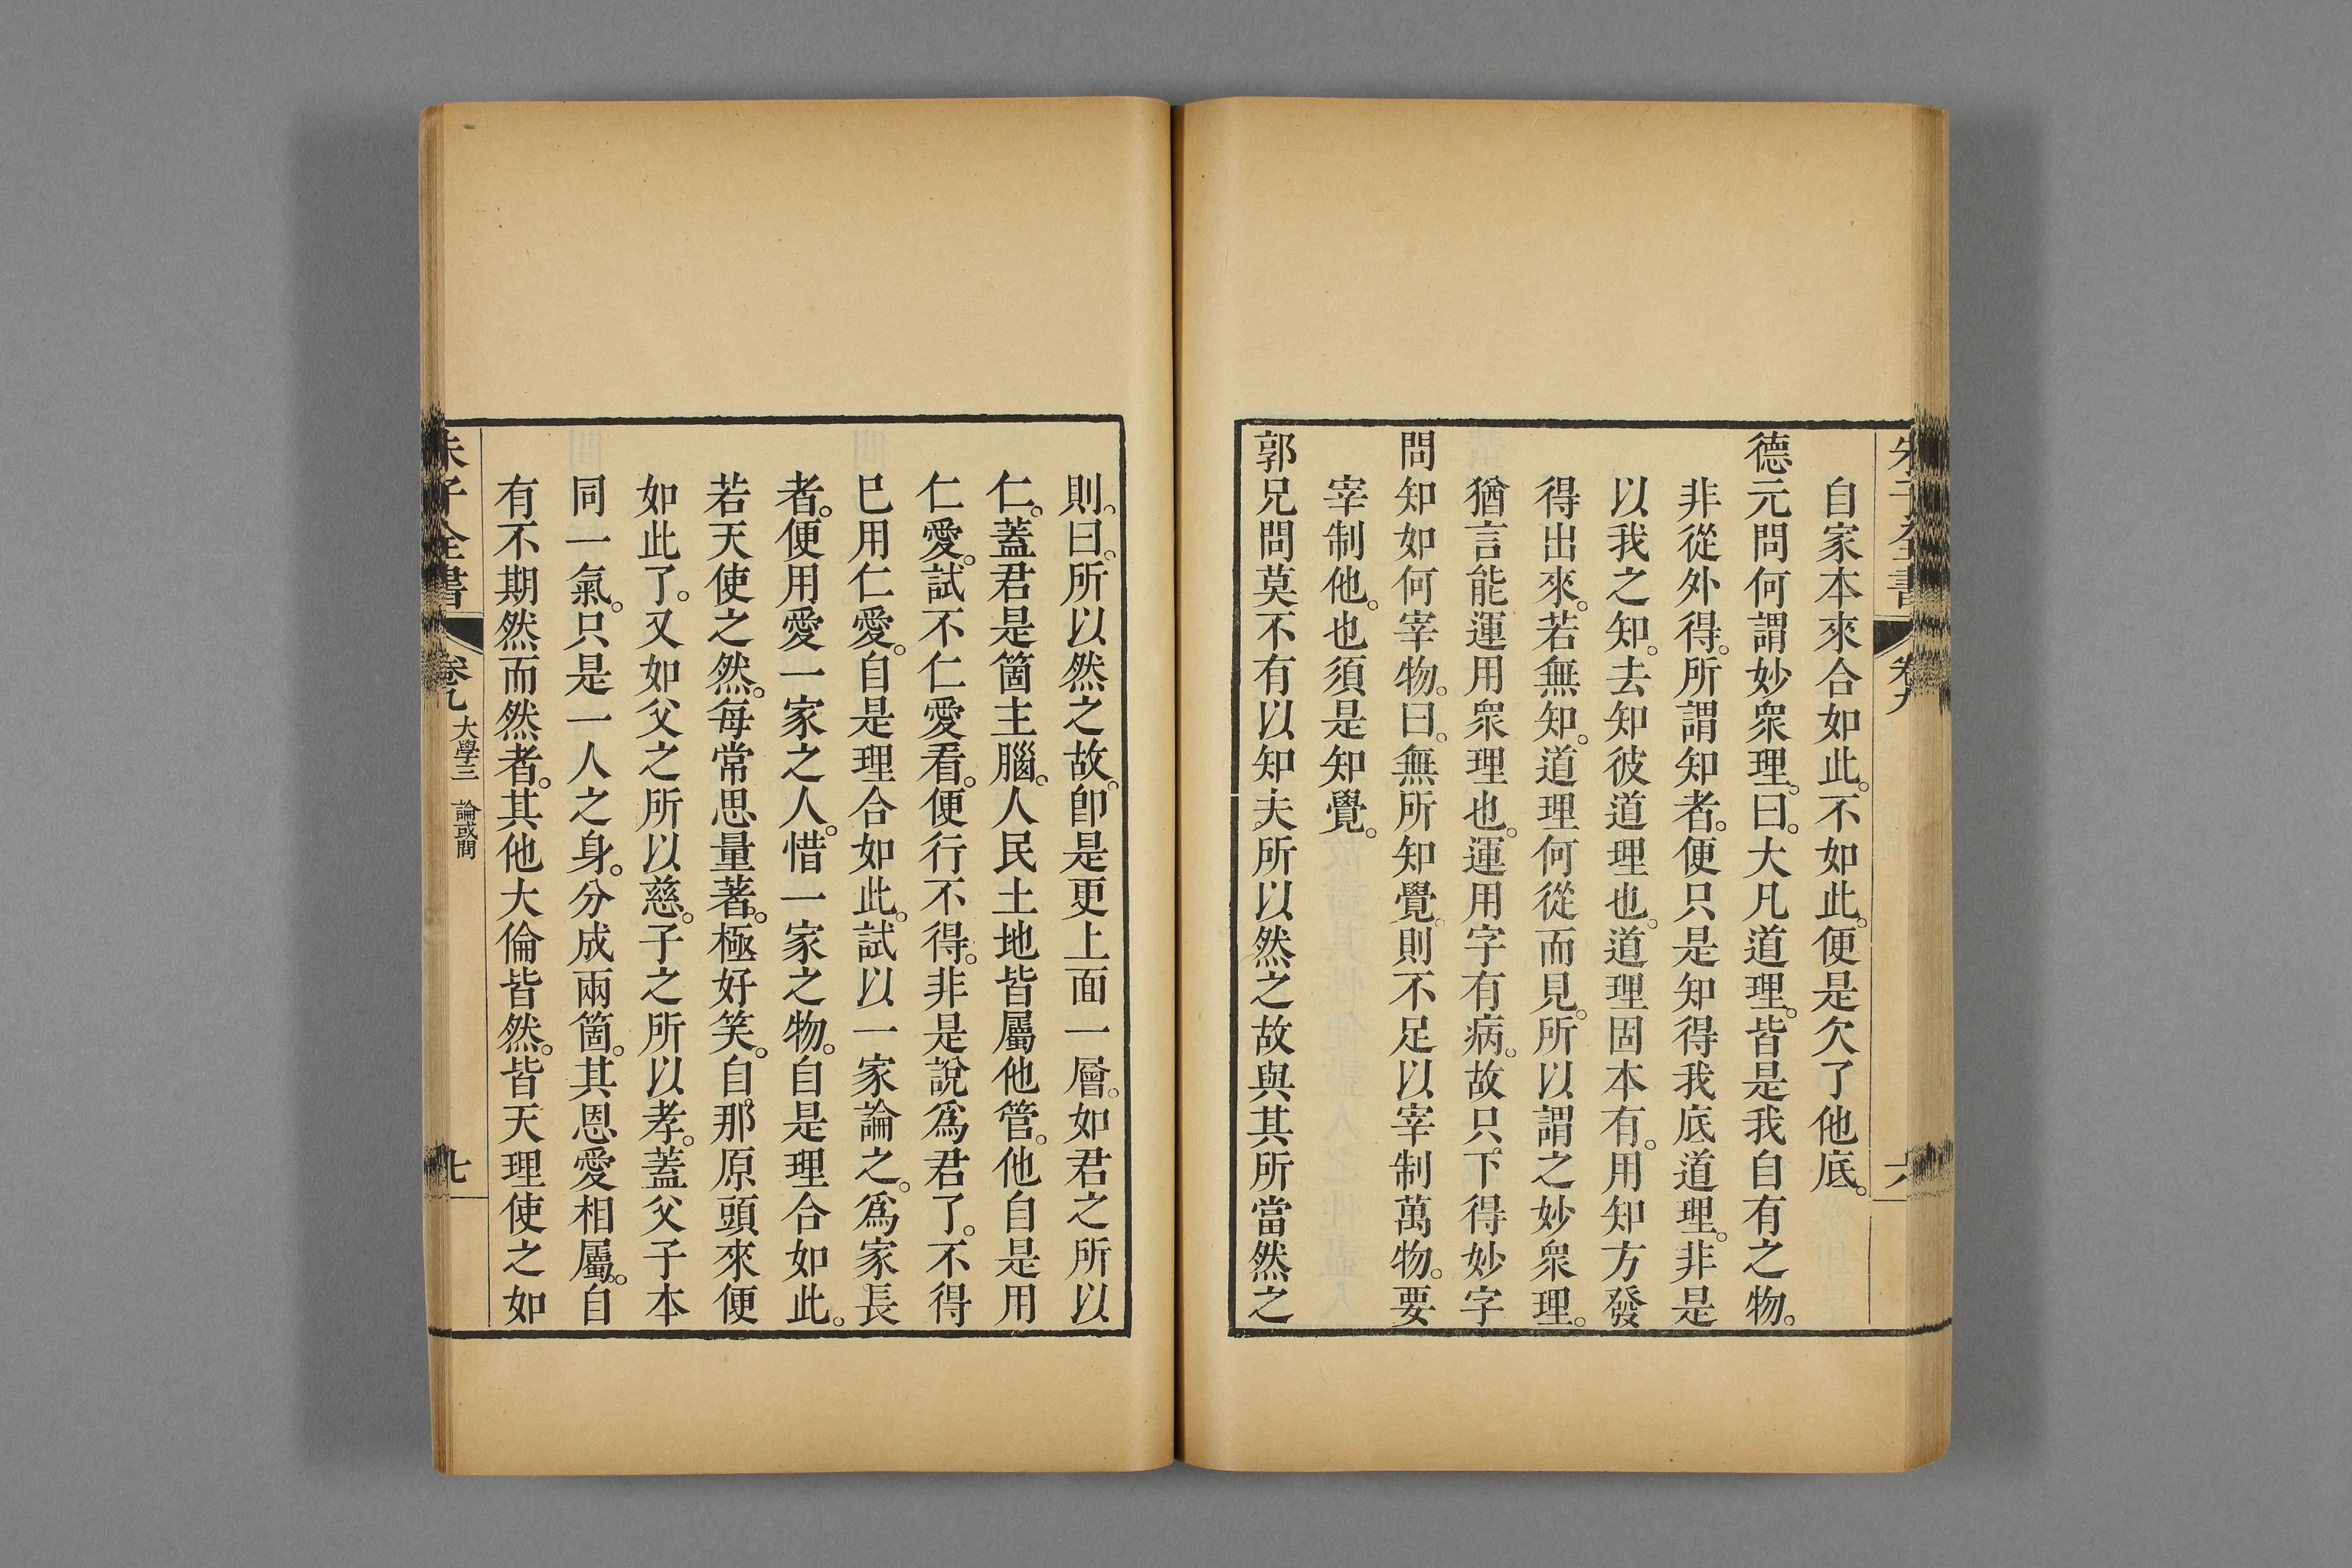 朱子全書 卷九 六
自家本來合如此。不如此。便是欠了他底。
德元問何謂妙衆理。曰。大凡道理。皆是我自有之物。
非從外得。所謂知者。便只是知得我底道理。非是
以我之知。去知彼道理也。道理固本有。用知方發
得出來。若無知。道理何從而見。所以謂之妙衆理。
猶言能運用衆理也。運用字有病。故只下得妙字
問知如何宰物。曰。無所知覺。則不足以宰制萬物。要
宰制他。也須是知覺。
郭兄問莫不有以知夫所以然之故與其所當然之
則。曰。所以然之故。卽是更上面一層。如君之所以
仁。蓋君是箇主腦。人民土地皆屬他管。他自是用
仁愛。試不仁愛看。便行不得。非是說爲君了。不得
已用仁愛。自是理合如此。試以一家論之。爲家長
者。便用愛一家之人。惜一家之物。自是理合如此。
若天使之然。每常思量著。極好笑。自那原頭來便
如此了。又如父之所以慈。子之所以孝。蓋父子本
同一氣。只是一人之身。分成兩箇。其恩愛相屬。自
有不期然而然者。其他大倫皆然。皆天理使之如
朱子全書 卷九 大學三 論或問 七